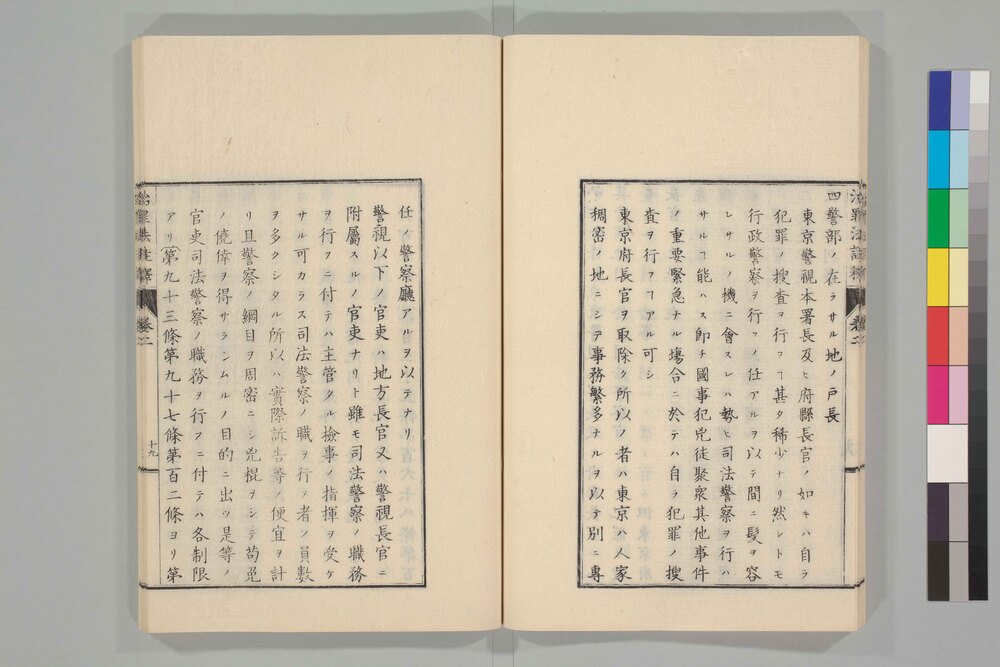 治罪法註釋 卷之二
四警部ノ在ラサル地ノ戸長
東京警視本署長及ヒ府縣長官ノ如キハ自ラ
犯罪ノ搜査ヲ行フヿ甚タ稀少ナリ然レトモ
行政警察ヲ行フノ任アルヲ以テ間ニ髮ヲ容
レサルノ機ニ會スレハ勢ヒ司法警察ヲ行ハ
サルヿ能ハス卽チ國事犯兇徒聚衆其他事件
ノ重要緊急ナル塲合ニ於テハ自ラ犯罪ノ搜
査ヲ行フヿアル可シ
東京府長官ヲ取除ク所以ノ者ハ東京ハ人家
稠密ノ地ニシテ事務繁多ナルヲ以テ別ニ專
任ノ警察廳アルヲ以テナリ
警視以下ノ官吏ハ地方長官又ハ警視長官ニ
附屬スルノ官吏ナリト雖モ司法警察ノ職務
ヲ行フニ付テハ主管タル撿事ノ指揮ヲ受ケ
サル可カラス司法警察ノ職ヲ行フ者ノ員數
ヲ多クシタル所以ハ實際訴告等ノ便宜ヲ計
リ且警察ノ綱目ヲ周密ニシ兇棍ヲシテ苟免
ノ僥倖ヲ得サラシムルノ目的ニ出ツ是等ノ
官吏司法警察ノ職務ヲ行フニ付テハ各制限
アリ(第九十三條第九十七條第百二條ヨリ第
治罪法註釋 卷之二 十九